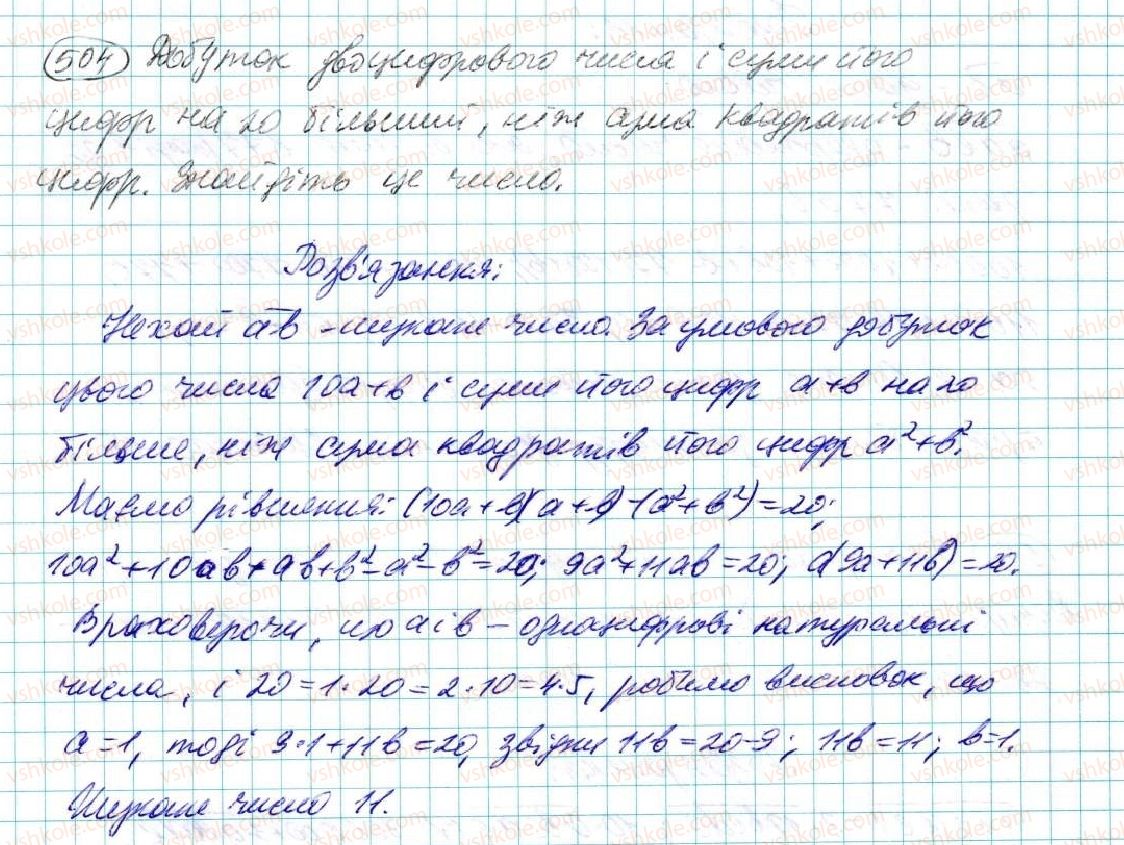 504 Добуток двоцифрового числа і суми його
цифр на 20 більший, ніж сума квадратів його
цифр. Знайдіть це число.
Розв'язання:
Нехай ав - шукане число. За умовою добуток
цього числа 10а+в і суми його цифр а+в на 20
більше, ніж сума квадратів його цифр а²+в².
Маємо рівняння: (10а+в)(а+в)-(а²+в²)=20;
10а²+10ав+ав+в²-а²-в²=20; 9а²+11ав=20; а(9а+11в)=20.
Враховуючи, що а і в - одноцифрові натуральні
числа, і 20=1·20=2·10=4·5, робимо висновок, що
а=1, тоді 9·1+11в=20, звідки 11в=20-9; 11в=11; в=1.
Шукане число 11.
vshkole.com